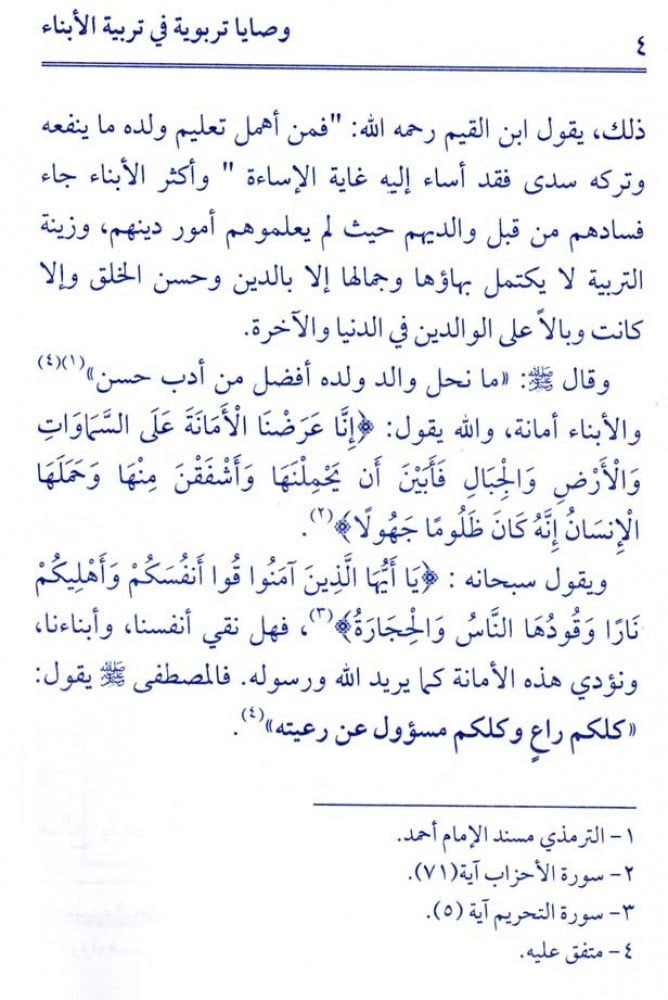 ٤ وصايا تربوية في تربية الأبناء
ذلك، يقول ابن القيم رحمه الله: "فمن أهمل تعليم ولده ما ينفعه
وتركه سدى فقد أساء إليه غاية الإساءة " وأكثر الأبناء جاء
فسادهم من قبل والديهم حيث لم يعلموهم أمور دينهم، وزينة
التربية لا يكتمل بهاؤها وجمالها إلا بالدين وحسن الخلق وإلا
كانت وبالاً على الوالدين في الدنيا والآخرة.
وقال ﷺ: «ما نحل والد ولده أفضل من أدب حسن»(١)(٤)
والأبناء أمانة، والله يقول: ﴿إِنَّا عَرَضْنَا الْأَمَانَةَ عَلَى السَّمَاوَاتِ
وَالْأَرْضِ وَالْجِبَالِ فَأَبَيْنَ أَن يَحْمِلْنَهَا وَأَشْفَقْنَ مِنْهَا وَحَمَلَهَا
الْإِنسَانُ إِنَّهُ كَانَ ظَلُومًا جَهُولًا﴾(٢).
ويقول سبحانه : ﴿يَا أَيُّهَا الَّذِينَ آمَنُوا قُوا أَنفُسَكُمْ وَأَهْلِيكُمْ
نَارًا وَقُودُهَا النَّاسُ وَالْحِجَارَةُ﴾(٣)، فهل نقي أنفسنا، وأبناءنا،
ونؤدي هذه الأمانة كما يريد الله ورسوله. فالمصطفى ﷺ يقول:
«كلكم راعٍ وكلكم مسؤول عن رعيته»(٤).
١- الترمذي مسند الإمام أحمد.
٢- سورة الأحزاب آية(٧١).
٣- سورة التحريم آية (٥).
٤- متفق عليه.